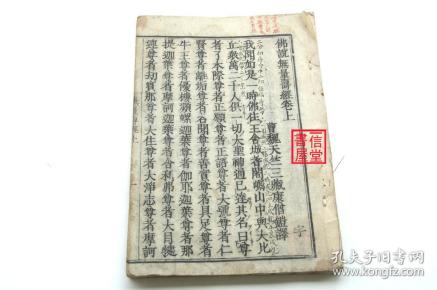 佛說無量壽經卷上
曹魏天竺三藏康僧鎧譯
我聞如是一時佛住王舍城耆闍崛山中與大比
丘衆萬二千人俱一切大聖神通已達其名曰尊
者了本際尊者正願尊者正語尊者大號尊者仁
賢尊者離垢尊者名聞尊者善實尊者具足尊者
牛王尊者優樓頻蠡迦葉尊者伽耶迦葉尊者那
提迦葉尊者摩訶迦葉尊者舍利弗尊者大目揵
連尊者劫賓那尊者大住尊者大淨志尊者摩訶
信堂
書屋
孔夫子旧书网